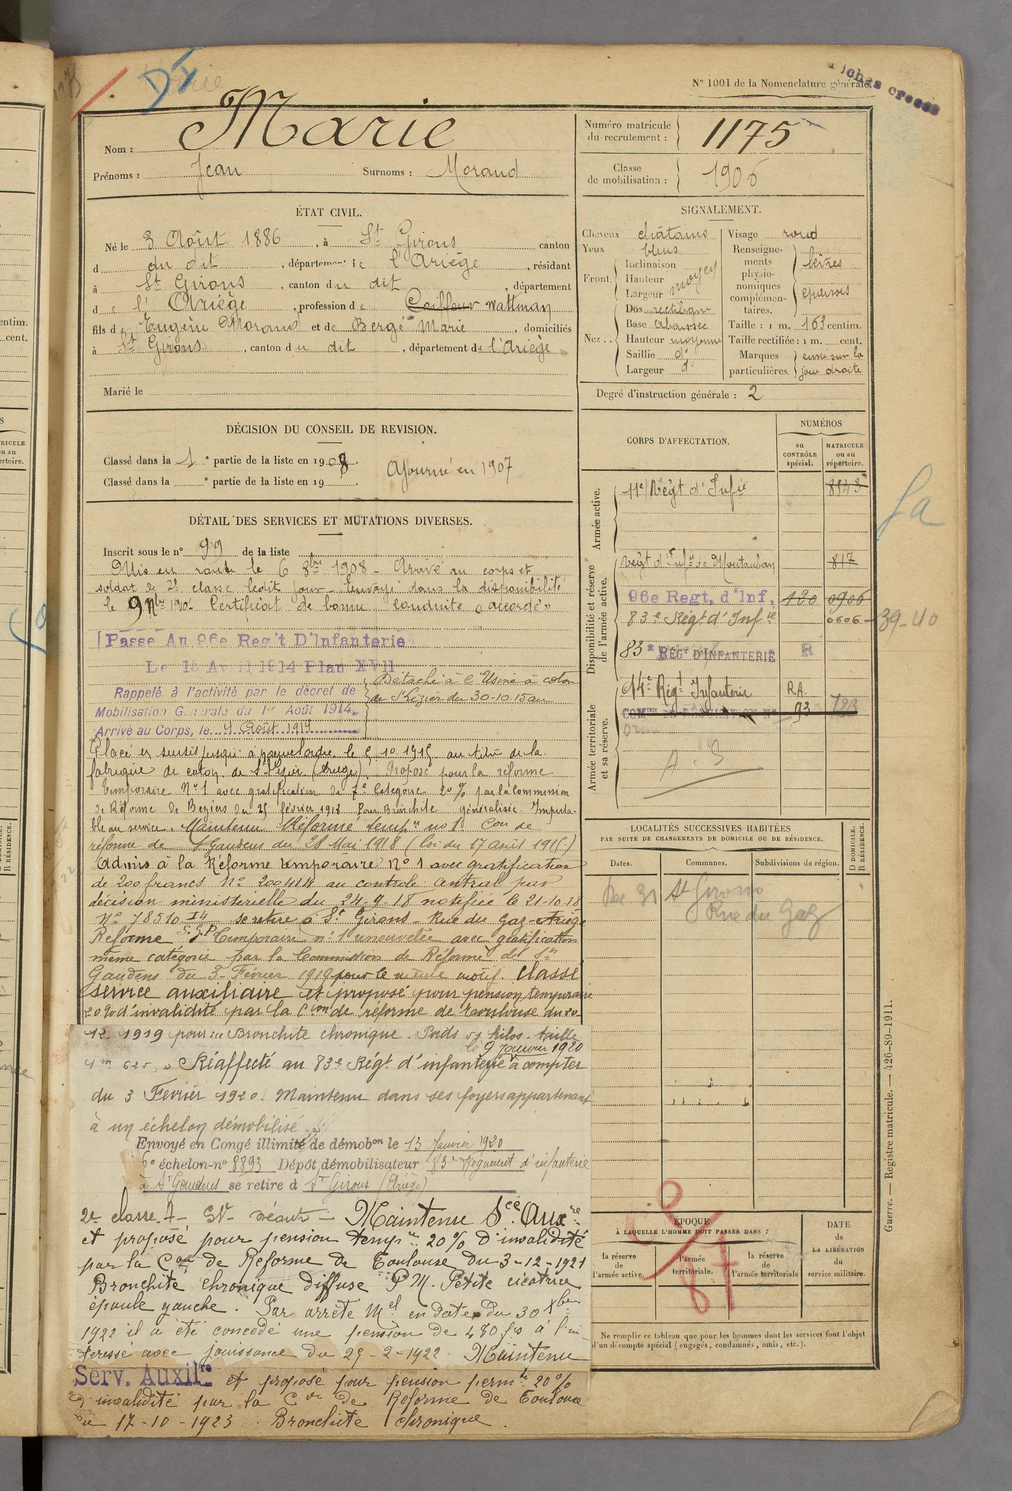 N° 1001 de la Nomenclature générale.
DI
Nom : Marie
Prénoms : Jean Surnoms : Morand
Numéro matricule du recrutement : 1175
Classe de mobilisation : 1906
ÉTAT CIVIL.
Né le 3 Août 1886, à St Girons canton
d du dit, département de l'Ariège, résidant
à St Girons, canton du dit, département
de l'Ariège, profession de Coiffeur Wattman
fils d'Eugène Morand et de Bergé Marie, domiciliés
à St Girons, canton du dit, département de l'Ariège
Marié le
SIGNALEMENT.
Cheveux châtains
Yeux bleus
Front. Inclinaison
Hauteur moyen
Largeur
Nez.. Dos rectiligne
Base
Hauteur moyenne
Saillie d°
Largeur d°
Visage rond
Renseignements physionomiques complémentaires. lèvres épaisses
Taille : 1 m. 163 centim.
Taille rectifiée : 1 m. cent.
Marques particulières. sur la joue droite
Degré d'instruction générale : 2
DÉCISION DU CONSEIL DE REVISION.
Classé dans la 1e partie de la liste en 1908.
Classé dans la e partie de la liste en 19
Ajourné en 1907
DÉTAIL DES SERVICES ET MUTATIONS DIVERSES.
Inscrit sous le n° 99 de la liste
Mis en route le 6 8bre 1908. Arrivé au corps et
soldat de 2e classe ledit jour. Envoyé dans la disponibilité
le Certificat de bonne conduite accordé
Passé Au 96e Reg't D'Infanterie
Le 15 Avril 1914 Plan XVII
Rappelé à l'activité par le décret de
Mobilisation Générale du 1er Août 1914
Arrivé au Corps, le 4 Août 1914
Détaché à l'Usine à coton
de St Lizier du 30-10-15 au
Placé en sursis jusqu'à nouvel ordre le au titre de la
fabrique de coton de St Lizier (Ariège). Proposé pour la réforme
temporaire N° 1 avec gratification de 7e Catégorie 20% par la Commission
de Réforme de Béziers du 25 février 1918 Pour Bronchite généralisée Imputable
au service. Maintenu Réformé tempre n° 1 Con de
réforme de St Gaudens du Mai 1918 (Loi du 17 Août 1915)
Admis à la Réforme temporaire N° 1 avec gratification
de 200 francs N° 200414 au contrôle central par
décision ministérielle du 24.9.18 notifiée le 21-10-18
N° 78510 I4 se retire à St Girons Rue du Gaz Ariège
Réforme Temporaire n° 1 renouvelée avec gratification
même catégorie par la Commission de Réforme de St
Gaudens du 3 Février 1919 pour le même motif. Classé
service auxiliaire et proposé pour pension temporaire
20% d'invalidité par la Con de réforme de Toulouse du 20
12 1919 pour Bronchite chronique. Poids 51 kilos. taille
le 9 Janvier 1920
1m 625. Réaffecté au 83e Régt d'infanterie à compter
du 3 Février 1920. Maintenu dans ses foyers appartenant
à un échelon démobilisé
Envoyé en Congé illimité de démobon le 13 Janvier 1920
6e échelon-n° 8893 Dépôt démobilisateur 83e Régiment d'infanterie
à St Gaudens se retire à St Girons (Ariège)
2e classe Maintenu Sce Auxre
et proposé pour pension tempre 20% d'invalidité
par la Con de Réforme de Toulouse du 3-12-1921
Bronchite chronique diffuse P.M. Petite cicatrice
épaule gauche. Par arrêté Mel en date du 30 Xbre
1922 il a été concédé une pension de 480 frs à l'in
téressé avec jouissance du 29-2-1922 Maintenu
Serv. Auxilre et proposé pour pension permte 20%
d'invalidité par la Con de Réforme de Toulouse
du 17-10-1923. Bronchite chronique.
CORPS D'AFFECTATION.
NUMÉROS
au CONTRÔLE spécial.
MATRICULE ou au répertoire.
Armée active.
Disponibilité et réserve de l'armée active.
Armée territoriale et sa réserve.
11e Régt d'Infie 8843
Régt d'Infie de Montauban 817
96e Regt. d'Inf. 120 0906
83e Régt d'Infie 0606 39-40
83e REGt D'INFANTERIE
14e Régt Infanterie R.A. 93
A.S
LOCALITÉS SUCCESSIVES HABITÉES
PAR SUITE DE CHANGEMENTS DE DOMICILE OU DE RÉSIDENCE.
Dates.
Communes.
Subdivisions de région.
D DOMICILE. R RÉSIDENCE.
St Girons
Rue du Gaz
ÉPOQUE
À LAQUELLE L'HOMME DOIT PASSER DANS :
la réserve de l'armée active.
l'armée territoriale.
la réserve de l'armée territoriale
DATE de LA LIBÉRATION du service militaire.
Ne remplir ce tableau que pour les hommes dont les services font l'objet
d'un décompte spécial (engagés, condamnés, omis, etc.).
Guerre. — Registre matricule. — 426-89-1911.